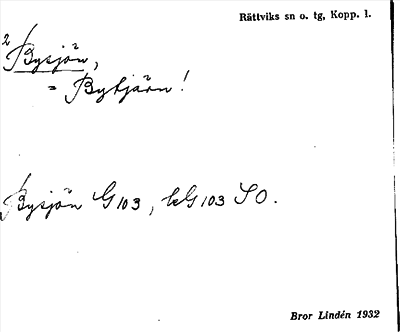 Rättviks sn o. tg, Kopp. l.
2 Bysjön,
= Bytjärn!
Bysjön G 103, kG 103 SO.
Bror Lindén 1932